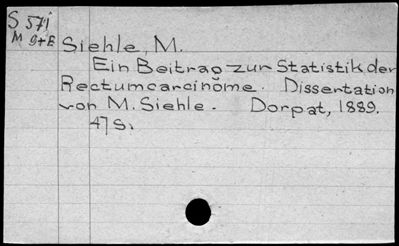 S 571
M g+E
Siehle, M.
Ein Beitrag zur Statistik der
Rectumcarcinome. Dissertation
von M. Siehle. Dorpat, 1889.
47 S.